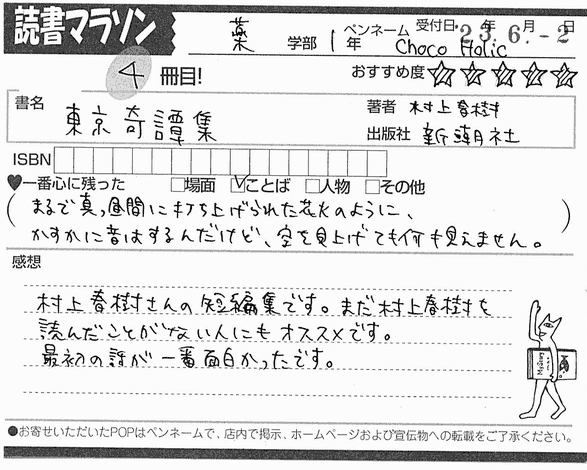 読書マラソン
薬 学部 1年 ペンネーム Choco Holic 受付日 '23.6.-2 年 月 日
4 冊目! おすすめ度 ☆☆☆☆☆
書名 東京奇譚集
著者 村上春樹
出版社 新潮社
ISBN
♥一番心に残った □場面 ☑ことば □人物 □その他
(まるで真っ昼間に打ち上げられた花火のように、
かすかに音はするんだけど、空を見上げても何も見えません。)
感想
村上春樹さんの短編集です。まだ村上春樹を
読んだことがない人にもオススメです。
最初の話が一番面白かったです。
Mystery
●お寄せいただいたPOPはペンネームで、店内で掲示、ホームページおよび宣伝物への転載をご了承ください。